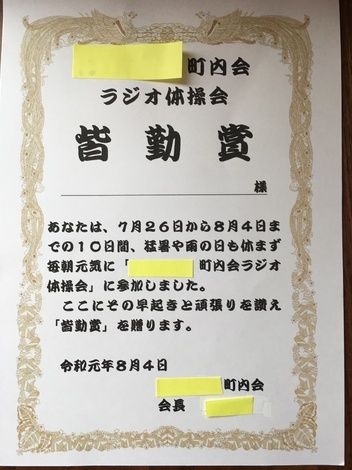 町内会
ラジオ体操会
皆勤賞
様
あなたは、7月26日から8月4日ま
での10日間、猛暑や雨の日も休まず
毎朝元気に「 町内会ラジオ
体操会」に参加しました。
ここにその早起きと頑張りを讃え
「皆勤賞」を贈ります。
令和元年8月4日
町内会
会長